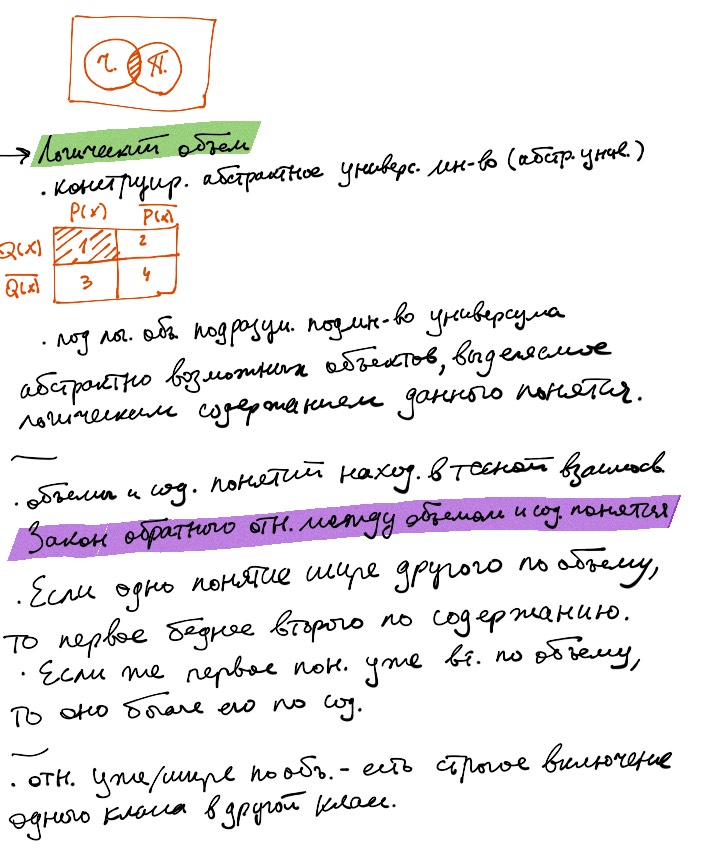 Ч. П.
→ Логический объем
· конструир. абстрактное универс. мн-во (абстр. унив.)
P(x) P(x)
Q(x) 1 2
Q(x) 3 4
· под лог. об. подразум. подмн-во универсума
абстрактно возможных объектов, выделяемое
логическим содержанием данного понятия.
· объемы и сод. понятий наход. в тесной взаимосв.
Закон обратного отн. между объемом и сод. понятия
· Если одно понятие шире другого по объему,
то первое беднее второго по содержанию.
· Если же первое пон. уже вт. по объему,
то оно богаче его по сод.
· отн. уже/шире по об. - есть строгое включение
одного класса в другой класс.